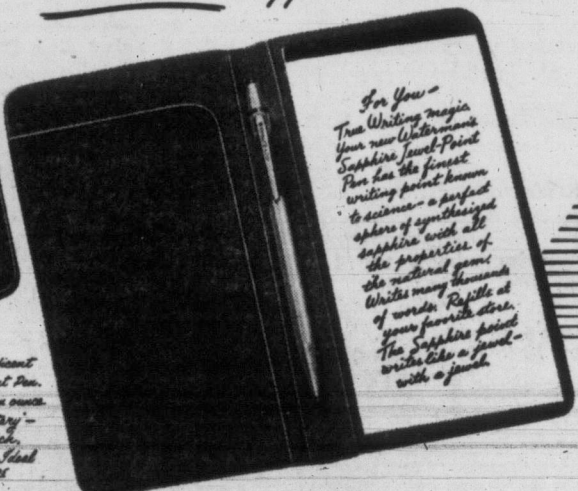 For You—
True Writing magic.
Your new Waterman's
Sapphire Jewel-Point
Pen has the finest
writing point known
to science—a perfect
sphere of synthesized
sapphire with all
the properties of
the natural gem.
Writes many thousands
of words. Refills at
your favorite store.
The Sapphire point
writes like a jewel—
with a jewel.
Pen.
ounce